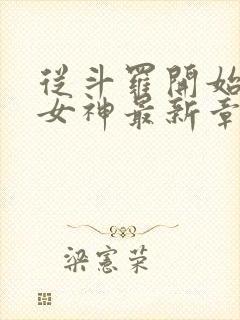 從斗羅開始
女神最新章
梁憲荣